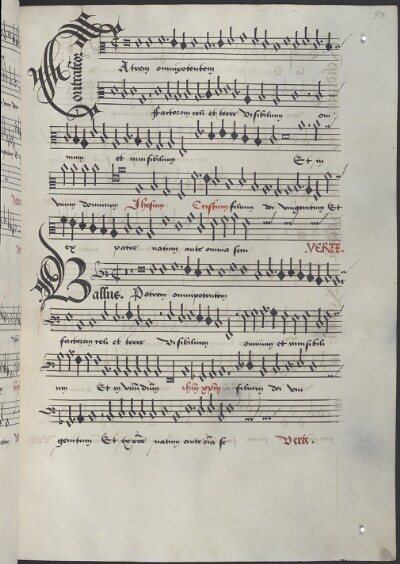 Contratenor
Patrem omnipotentem
ffactorem celi et terre visibilium om
nium et invisibilium Et in
unum dominum Jhesum Cristum filium dei unigenitum Et
ex patre natum ante omnia secu
VERTE.
Bassus. Patrem omnipotentem
factorem celi et terre visibilium omnium et invisibili
um Et in unum dnum ihm xpm filium dei uni
genitum Et ex patre natum ante oia se Verte.